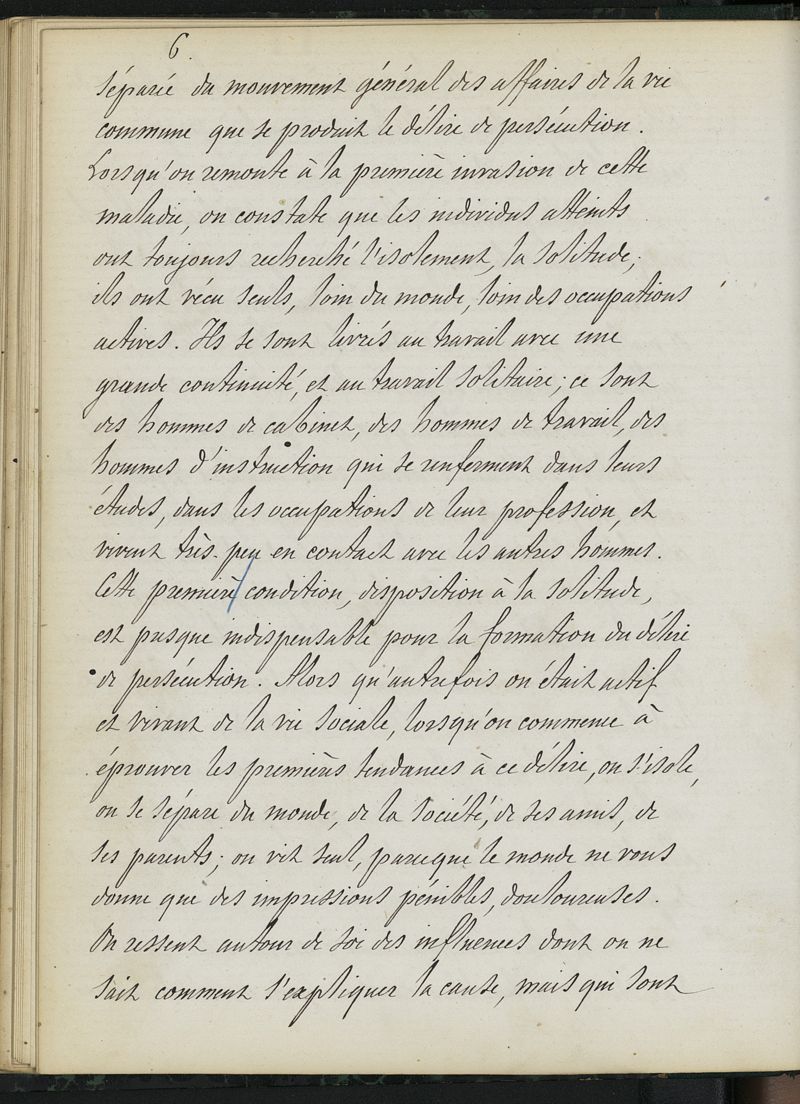 6.
séparée du mouvement général des affaires de la vie
commune que se produit le délire de persécution.
Lorsqu'on remonte à la première invasion de cette
maladie, on constate que les individus atteints
ont toujours recherché l'isolement, la solitude;
ils ont vécu seuls, loin du monde, loin des occupations
actives. Ils se sont livrés au travail avec une
grande continuité, et au travail solitaire; ce sont
des hommes de cabinet, des hommes de travail, des
hommes d'instruction qui se renferment dans leurs
études, dans les occupations de leur profession, et
vivent très-peu en contact avec les autres hommes.
Cette première condition, disposition à la solitude,
est presque indispensable pour la formation du délire
de persécution. Alors qu'autrefois on était actif
et vivant de la vie sociale, lorsqu'on commence à
éprouver les premières tendances à ce délire, on s'isole,
on se sépare du monde, de la société, de ses amis, de
ses parents; on vit seul, parceque le monde ne vous
donne que des impressions pénibles, douloureuses.
On ressent autour de soi des influences dont on ne
sait comment s'expliquer la cause, mais qui sont